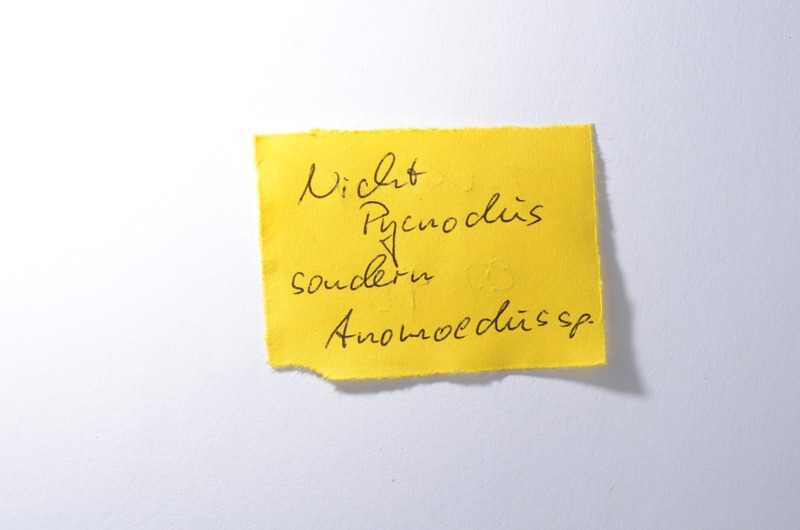 Nicht
Pycnodus
sondern
Anomoedus sp.